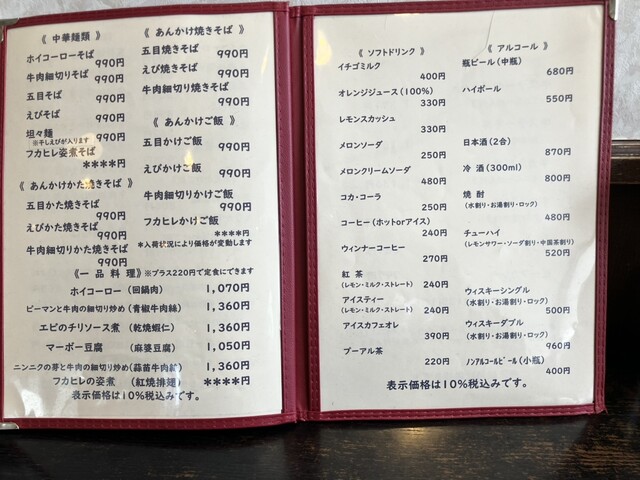 《 中華麺類 》
ホイコーローそば
990円
牛肉細切りそば
990円
五目そば
990円
えびそば
990円
坦々麺 990円
※干しえびが入ります
フカヒレ姿煮そば
****円
《 あんかけかた焼きそば 》
五目かた焼きそば
990円
えびかた焼きそば
990円
牛肉細切りかた焼きそば
990円
《 あんかけ焼きそば 》
五目焼きそば
990円
えび焼きそば
990円
牛肉細切り焼きそば
990円
《 あんかけご飯 》
五目かけご飯
990円
えびかけご飯
990円
牛肉細切りかけご飯
990円
フカヒレかけご飯
****円
*入荷状況により価格が変動します
《 一 品 料 理 》※プラス220円で定食にできます
ホイコーロー (回鍋肉) 1,070円
ピーマンと牛肉の細切り炒め (青椒牛肉絲) 1,360円
エビのチリソース煮 (乾焼蝦仁) 1,360円
マーボー豆腐 (麻婆豆腐) 1,050円
ニンニクの芽と牛肉の細切り炒め (蒜苗牛肉絲) 1,360円
フカヒレの姿煮 (紅焼排翅) ****円
表示価格は10%税込みです。
《 ソフトドリンク 》
イチゴミルク
400円
オレンジジュース (100%)
330円
レモンスカッシュ
330円
メロンソーダ
250円
メロンクリームソーダ
480円
コカ・コーラ
250円
コーヒー (ホットorアイス)
240円
ウィンナーコーヒー
270円
紅 茶
(レモン・ミルク・ストレート) 240円
アイスティー
(レモン・ミルク・ストレート) 240円
アイスカフェオレ
390円
プーアル茶
220円
《 アルコール 》
瓶ビール (中瓶)
680円
ハイボール
550円
日本酒 (2合)
870円
冷 酒 (300ml)
800円
焼 酎
(水割り・お湯割り・ロック)
480円
チューハイ
(レモンサワー・ソーダ割り・中国茶割り)
520円
ウィスキーシングル
(水割り・お湯割り・ロック)
500円
ウィスキーダブル
(水割り・お湯割り・ロック)
960円
ノンアルコールビール (小瓶)
400円
表示価格は10%税込みです。